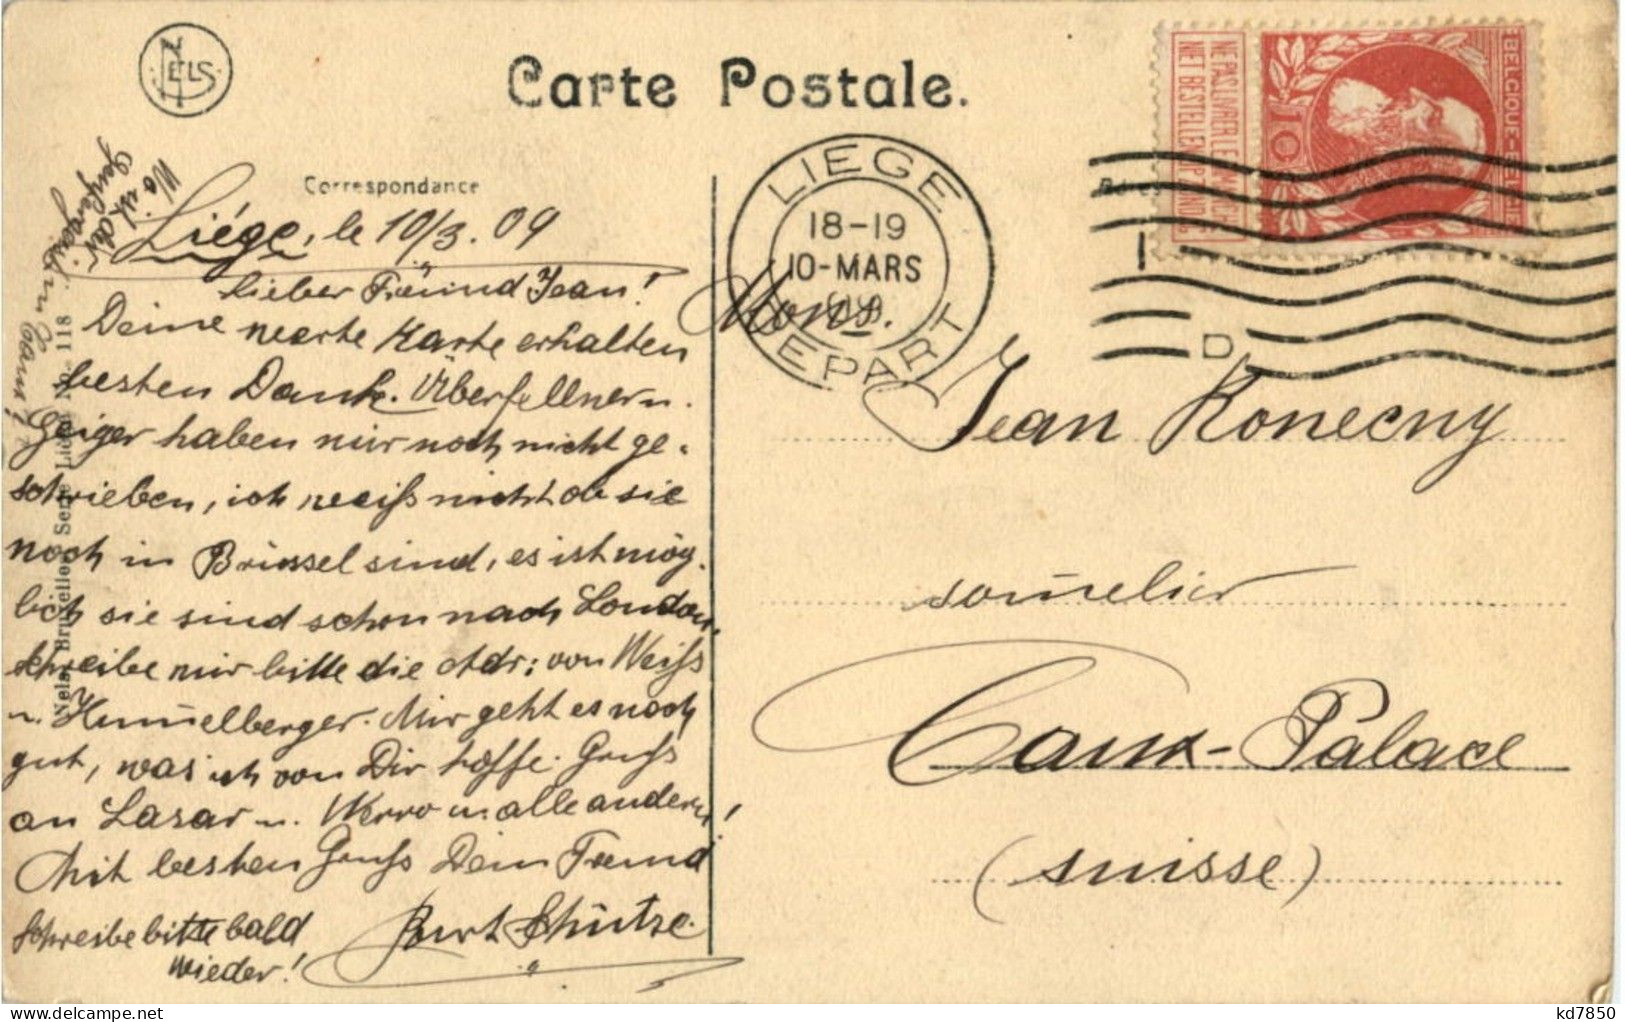 NELS
Carte Postale.
Correspondance
BELGIQUE-BELGIË
10
NE PAS LIVRER LE DIMANCHE
NET BESTELLEN OP ZONDAG
LIEGE
18-19
10-MARS
09
DEPART
Liége, le 10/3. 09
Lieber Freund Jean!
Deine werte Karte erhalten
besten Dank. Überfellner u.
Geiger haben mir noch nicht ge-
schrieben, ich weiß nicht ob sie
noch in Brüssel sind, es ist mög-
lich sie sind schon nach London.
Schreibe mir bitte die Adr: von Weiß
u. Hum̅elberger. Mir geht es noch
gut, was ich von Dir hoffe. Gruß
an Lasar u. Werro u. alle andern!
Mit besten Gruß Dein Freund
Kurt Schütze.
Schreibe bitte bald
wieder!
Wo ist der
in Caux?
Nels, Bruxelles Serie Liège No. 118
Mons.
Jean Konecny
som̅elier
Caux-Palace
(suisse)
kd7850